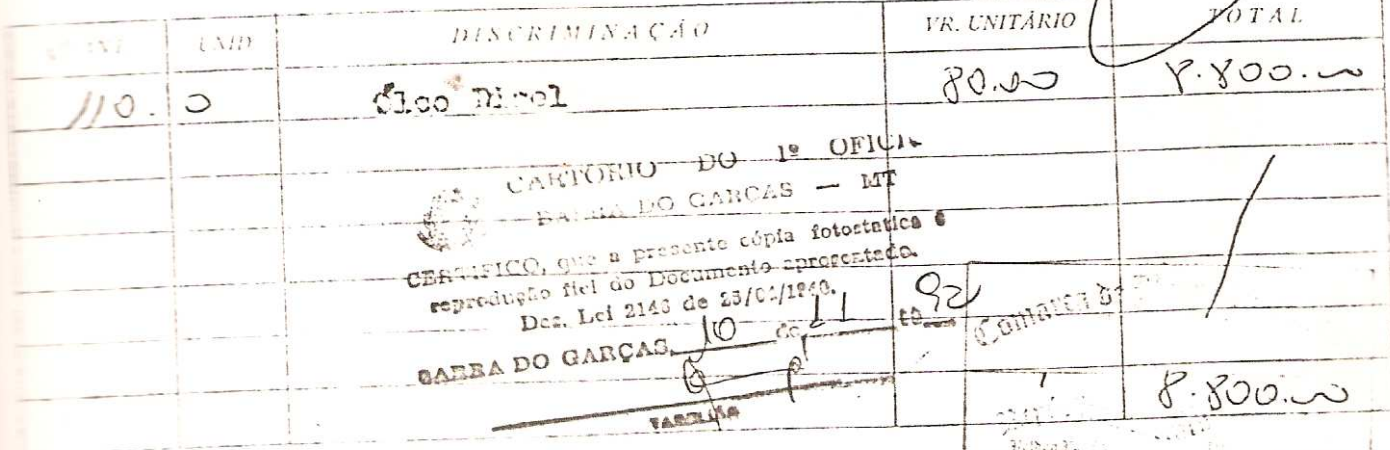 UNID DISCRIMINAÇÃO VR. UNITÁRIO TOTAL
110. 80.00 8.800.00
CARTORIO DO 1º OFICIO
DO GARÇAS — MT
CERTIFICO, que a presente cópia fotostatica é
reprodução fiel do Documento apresentado.
Dec. Lei 2148 de
BARRA DO GARÇAS, 10 de 11 de 92
TABELIÃO
Comarca
8.800.00